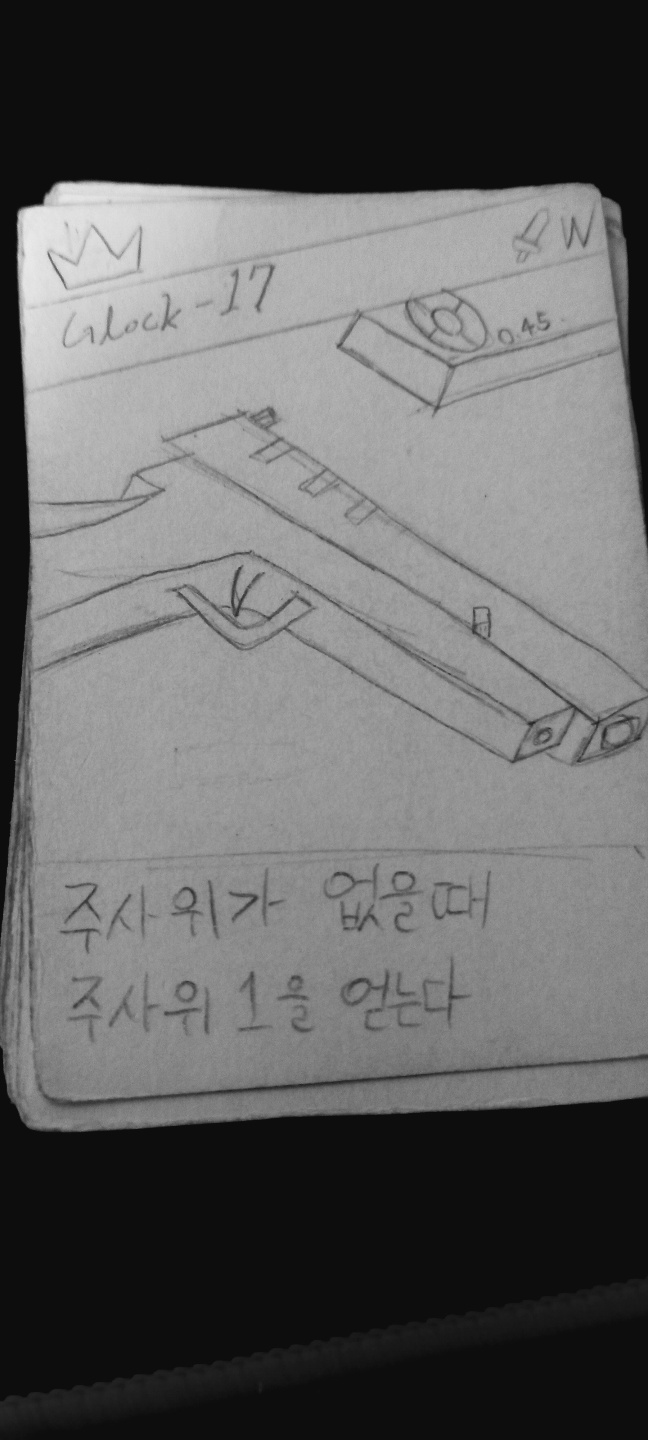 W
Glock-17
0.45
주사위가 없을때
주사위 1을 얻는다